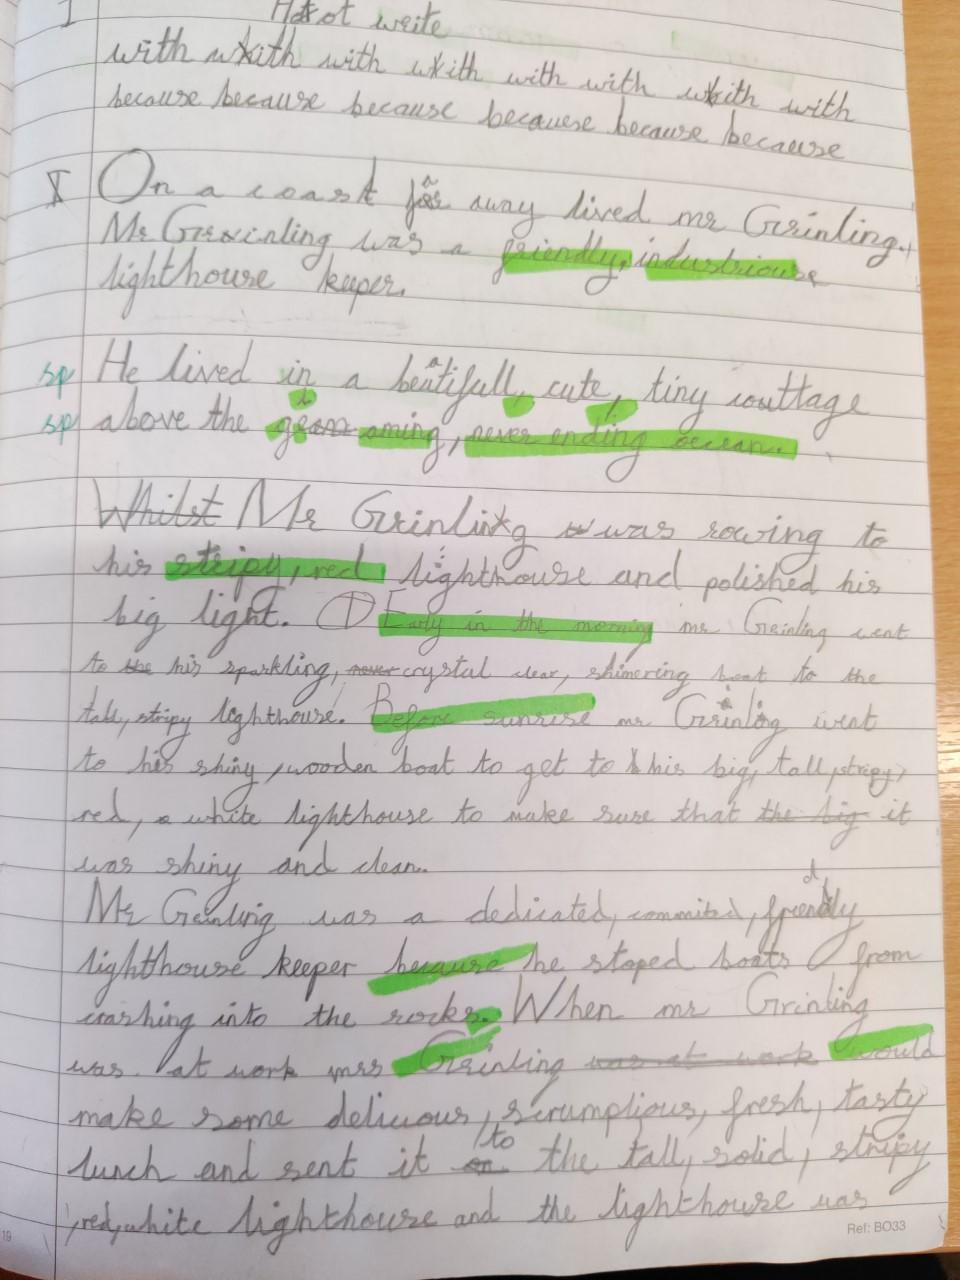 I Hot write
with with with with with with with with
because because because becauese because because
I On a coast far away lived mr Grinling.
Mr Grinling was a friendly, industriouse
lighthouse keeper.
sp He lived in a beatifull, cute, tiny couttage
sp above the aming, never ending ocean.
Whilst Mr Grinling was rowing to
his stripy, red lighthouse and polished his
big light. 1 Early in the morning mr Grinling went
to the his sparkling, never crystal clear, shimering boat to the
tall, stripy lighthouse. Before sunrise mr Grinling went
to his shiny, wooden boat to get to his big, tall, stripy,
red, a white lighthouse to make sure that the big it
was shiny and clean.
Mr Grinling was a dedicated, commited, friendly
lighthouse keeper because he stoped boats from
crashing into the rocks. When mr Grinling
was at work mrs Grinling was at work would
make some delicious, scrumptious, fresh, tasty
lunch and sent it on to the tall, solid, stripy
, red, white lighthouse and the lighthouse was
19 Ref: BO33